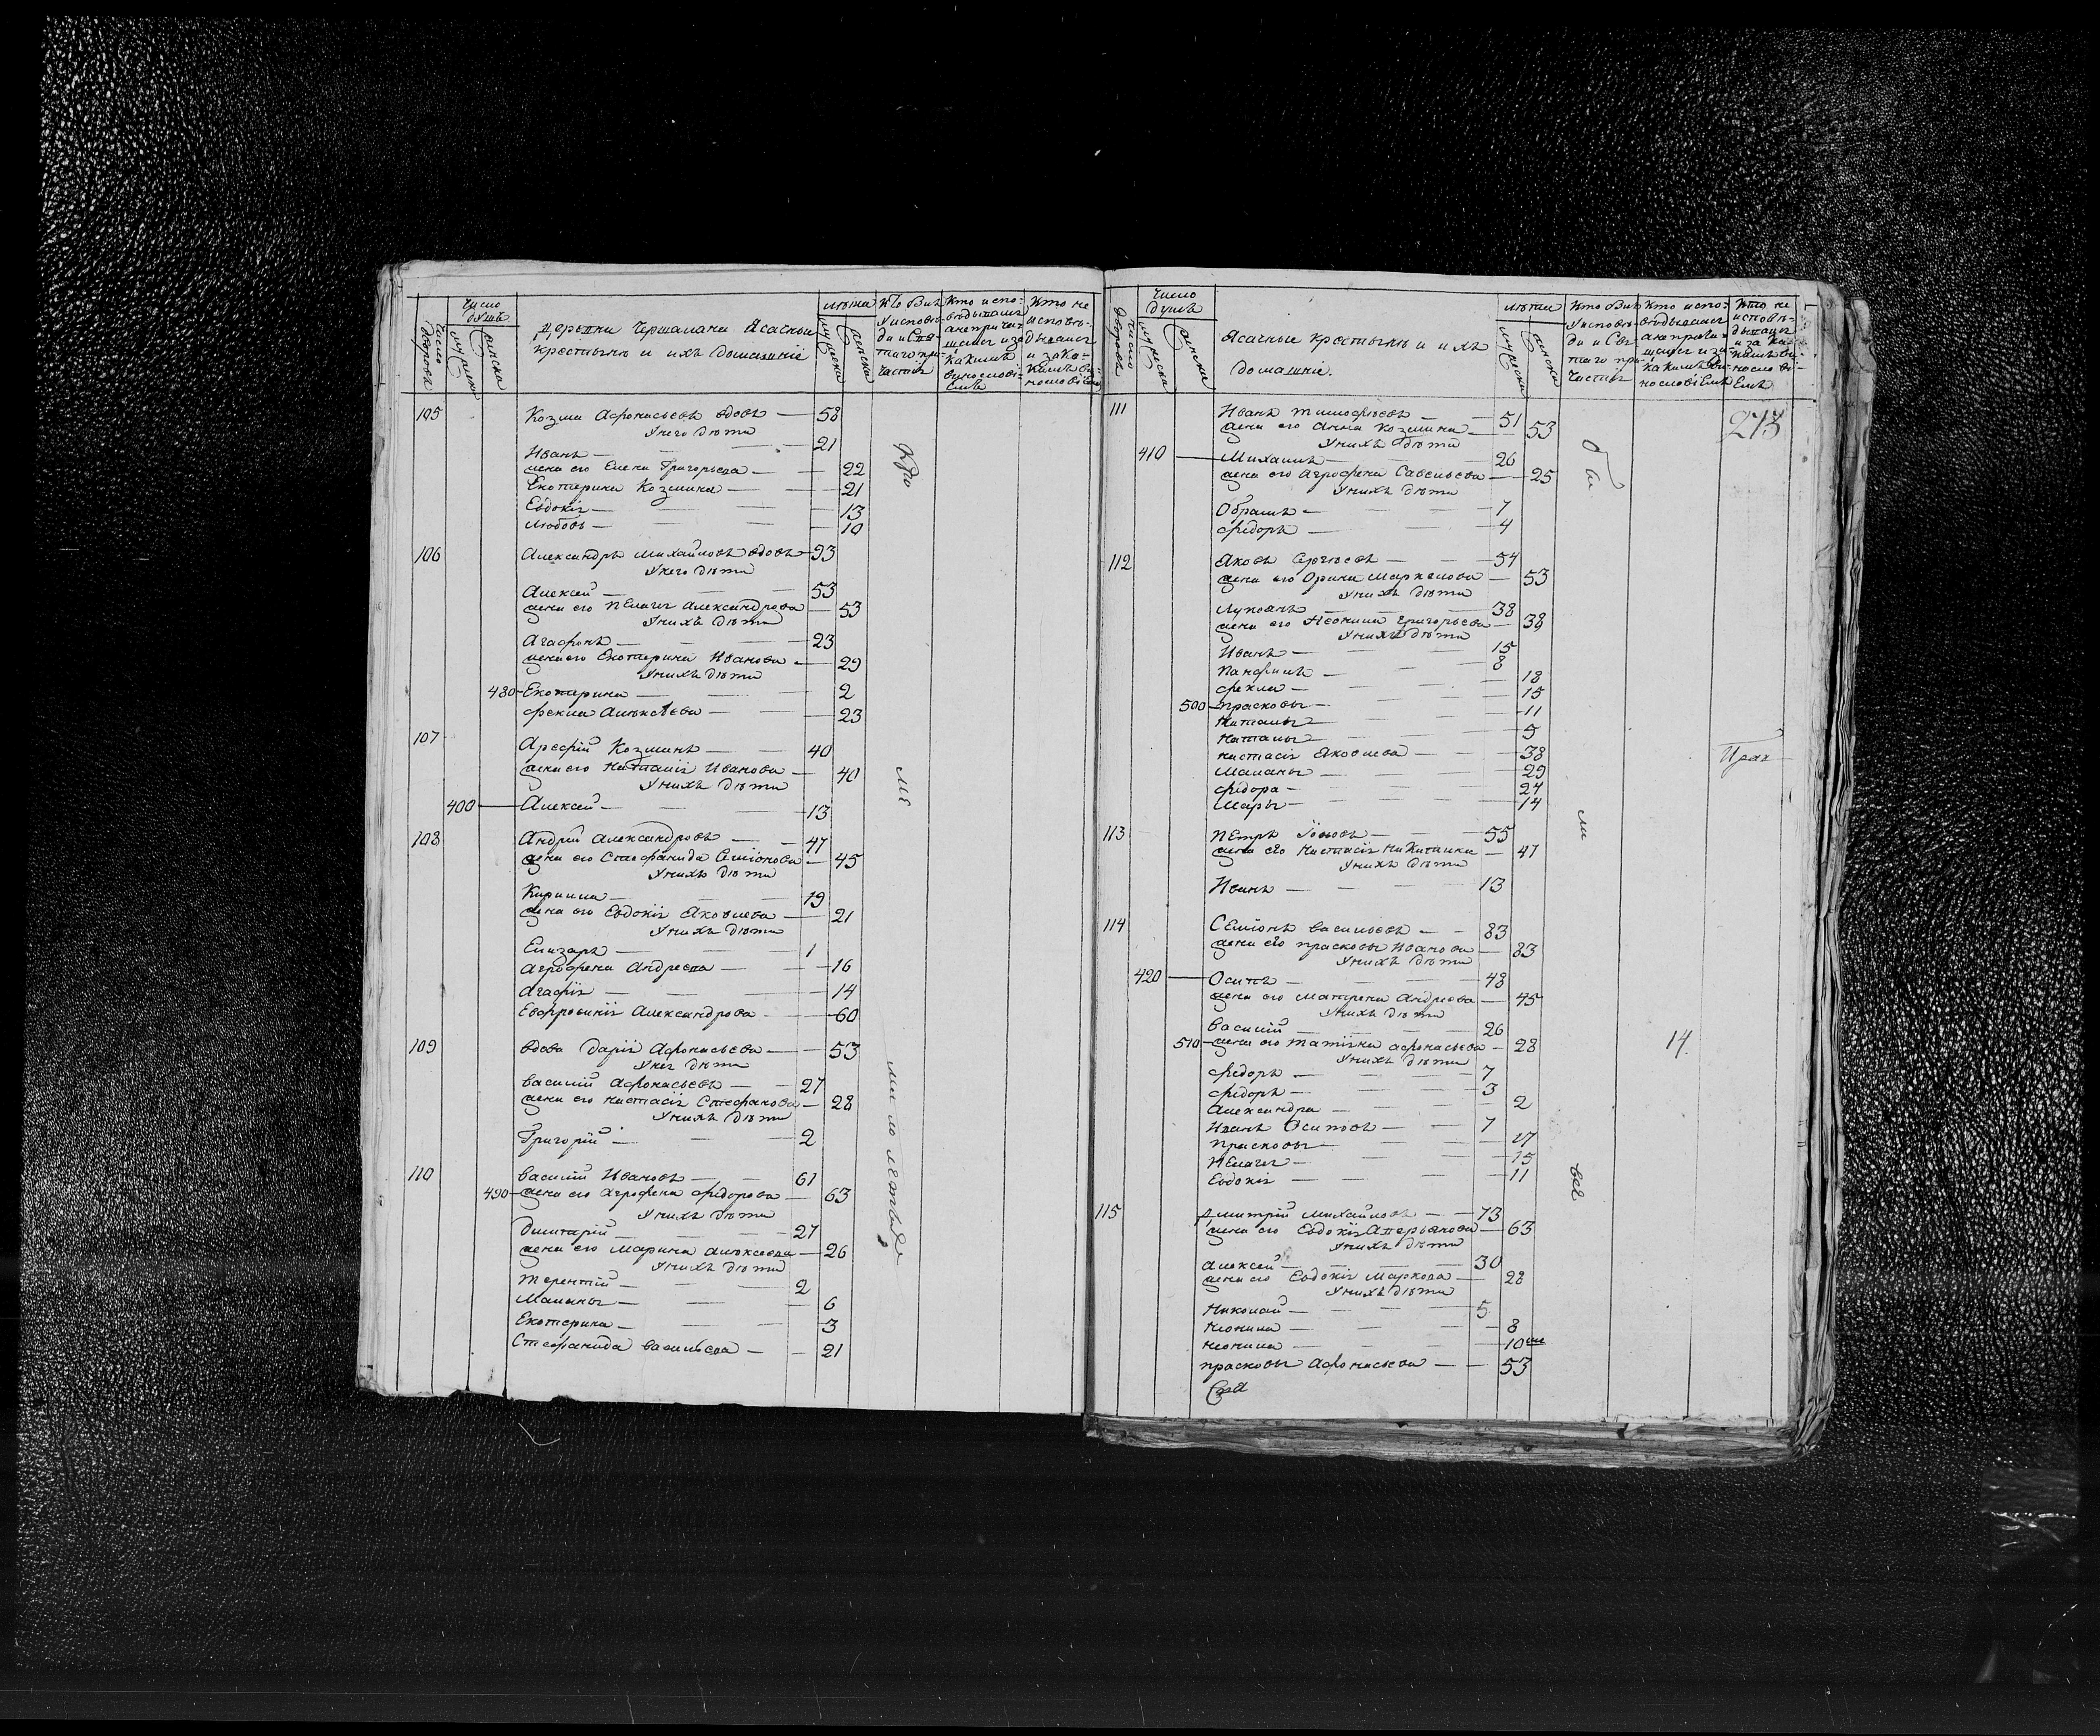 Число дворовъ
Число душъ
мужеска
женска
Деревни Чершалани Ясасныи
крестьянѣ и ихъ домашніе
лѣта
мужеска
женска
Кто были
у исповѣ-
ди и свя-
таго при-
частія
Кто испо-
вѣдывался
а не прича-
щался и за
какимъ
винослові-
емъ
Кто не
исповѣ-
дывался
и за ка-
кимъ ви-
нословіемъ
105 Козма Афонасьевъ вдовъ — 58
У него дѣти
Иванъ — 21
жена его Елена Григорьева — 22
Екотерина Козмина — 21
Евдокія — 13
Любовь — 10
106 Александръ Михайловъ вдовъ — 93
У него дѣти
Алексей — 53
жена его Пелагея Александрова — 53
У нихъ дѣти
Агафонъ — 23
жена его Екотерина Иванова — 29
У нихъ дѣти
480 Екотерина — 2
Фекла Алѣксѣева — 23
107 Арефій Козминъ — 40
жена его Наталія Иванова — 40
У нихъ дѣти
400 Алексей — 13
108 Андрей Александровъ — 47
жена его Стефанида Семіонова — 45
У нихъ дѣти
Кирилла — 19
жена его Евдокія Яковлева — 21
У нихъ дѣти
Елизаръ — 1
Агрофена Андреева — 16
Агафія — 14
Евфросинія Александрова — 60
109 вдова Дарія Афонасьева — 53
У нея дѣти
Василій Афонасьевъ — 27
жена его Настасія Стефанова — 28
У нихъ дѣти
Григорій — 2
110 Василій Ивановъ — 61
490 жена его Агрофена Федорова — 63
У нихъ дѣти
Дмитарій — 27
жена его Марина Алѣксеева — 26
У нихъ дѣти
Терентій — 2
Маланья — 6
Екотерина — 3
Стефанида Васильева — 21
Число дворовъ
Число душъ
мужеска
женска
Ясачные крестьянѣ и ихъ
домашніе.
лѣта
мужеска
женска
Кто были
у исповѣ-
ди и свя-
таго при-
частія
Кто испо-
вѣдывался
а не прича-
щался и за
какимъ ви-
нословіемъ
Кто не
исповѣ-
дывался
и за ка-
кимъ ви-
нослові-
емъ
273
111 Иванъ Тимофѣевъ — 51
жена его Анна Козмина — 53
У нихъ дѣти
410 Михаилъ — 26
жена его Агрофена Савельева — 25
У нихъ дѣти
Обрамъ — 7
Федоръ — 4
112 Яковъ Сергѣевъ — 54
жена его Орина Маркелова — 53
У нихъ дѣти
Лукоянъ — 38
жена его Неонила Григорьева — 38
У нихъ дѣти
Иванъ — 15
Панфилъ — 8
Фекла — 18
500 Прасковья — 15
Наталья — 11
Наталья — 5
Настасія Яковлева — 38
Маланья — 29
Федора — 24
Марья — 14
113 Петръ Іововъ — 55
жена его Настасія Никитина — 47
У нихъ дѣти
Иванъ — 13
114 Семіонъ Васильевъ — 83
жена его Прасковья Иванова — 83
У нихъ дѣти
420 Осипъ — 48
жена его Матрена Андреева — 45
У нихъ дѣти
Василій — 26
510 жена его Татіяна Афонасьева — 28
У нихъ дѣти
Федоръ — 7
Федоръ — 3
Александра — 2
Иванъ Осиповъ — 7
Прасковья — 17
Пелагея — 15
Евдокія — 11
14.
115 Дмитрій Михайловъ — 73
жена его Евдокія — 63
У нихъ дѣти
Алексей — 30
жена его Евдокія Маркова — 28
У нихъ дѣти
Николай — 5
Неонила — 8
Неонила — 10
Прасковья Афонасьева — 53